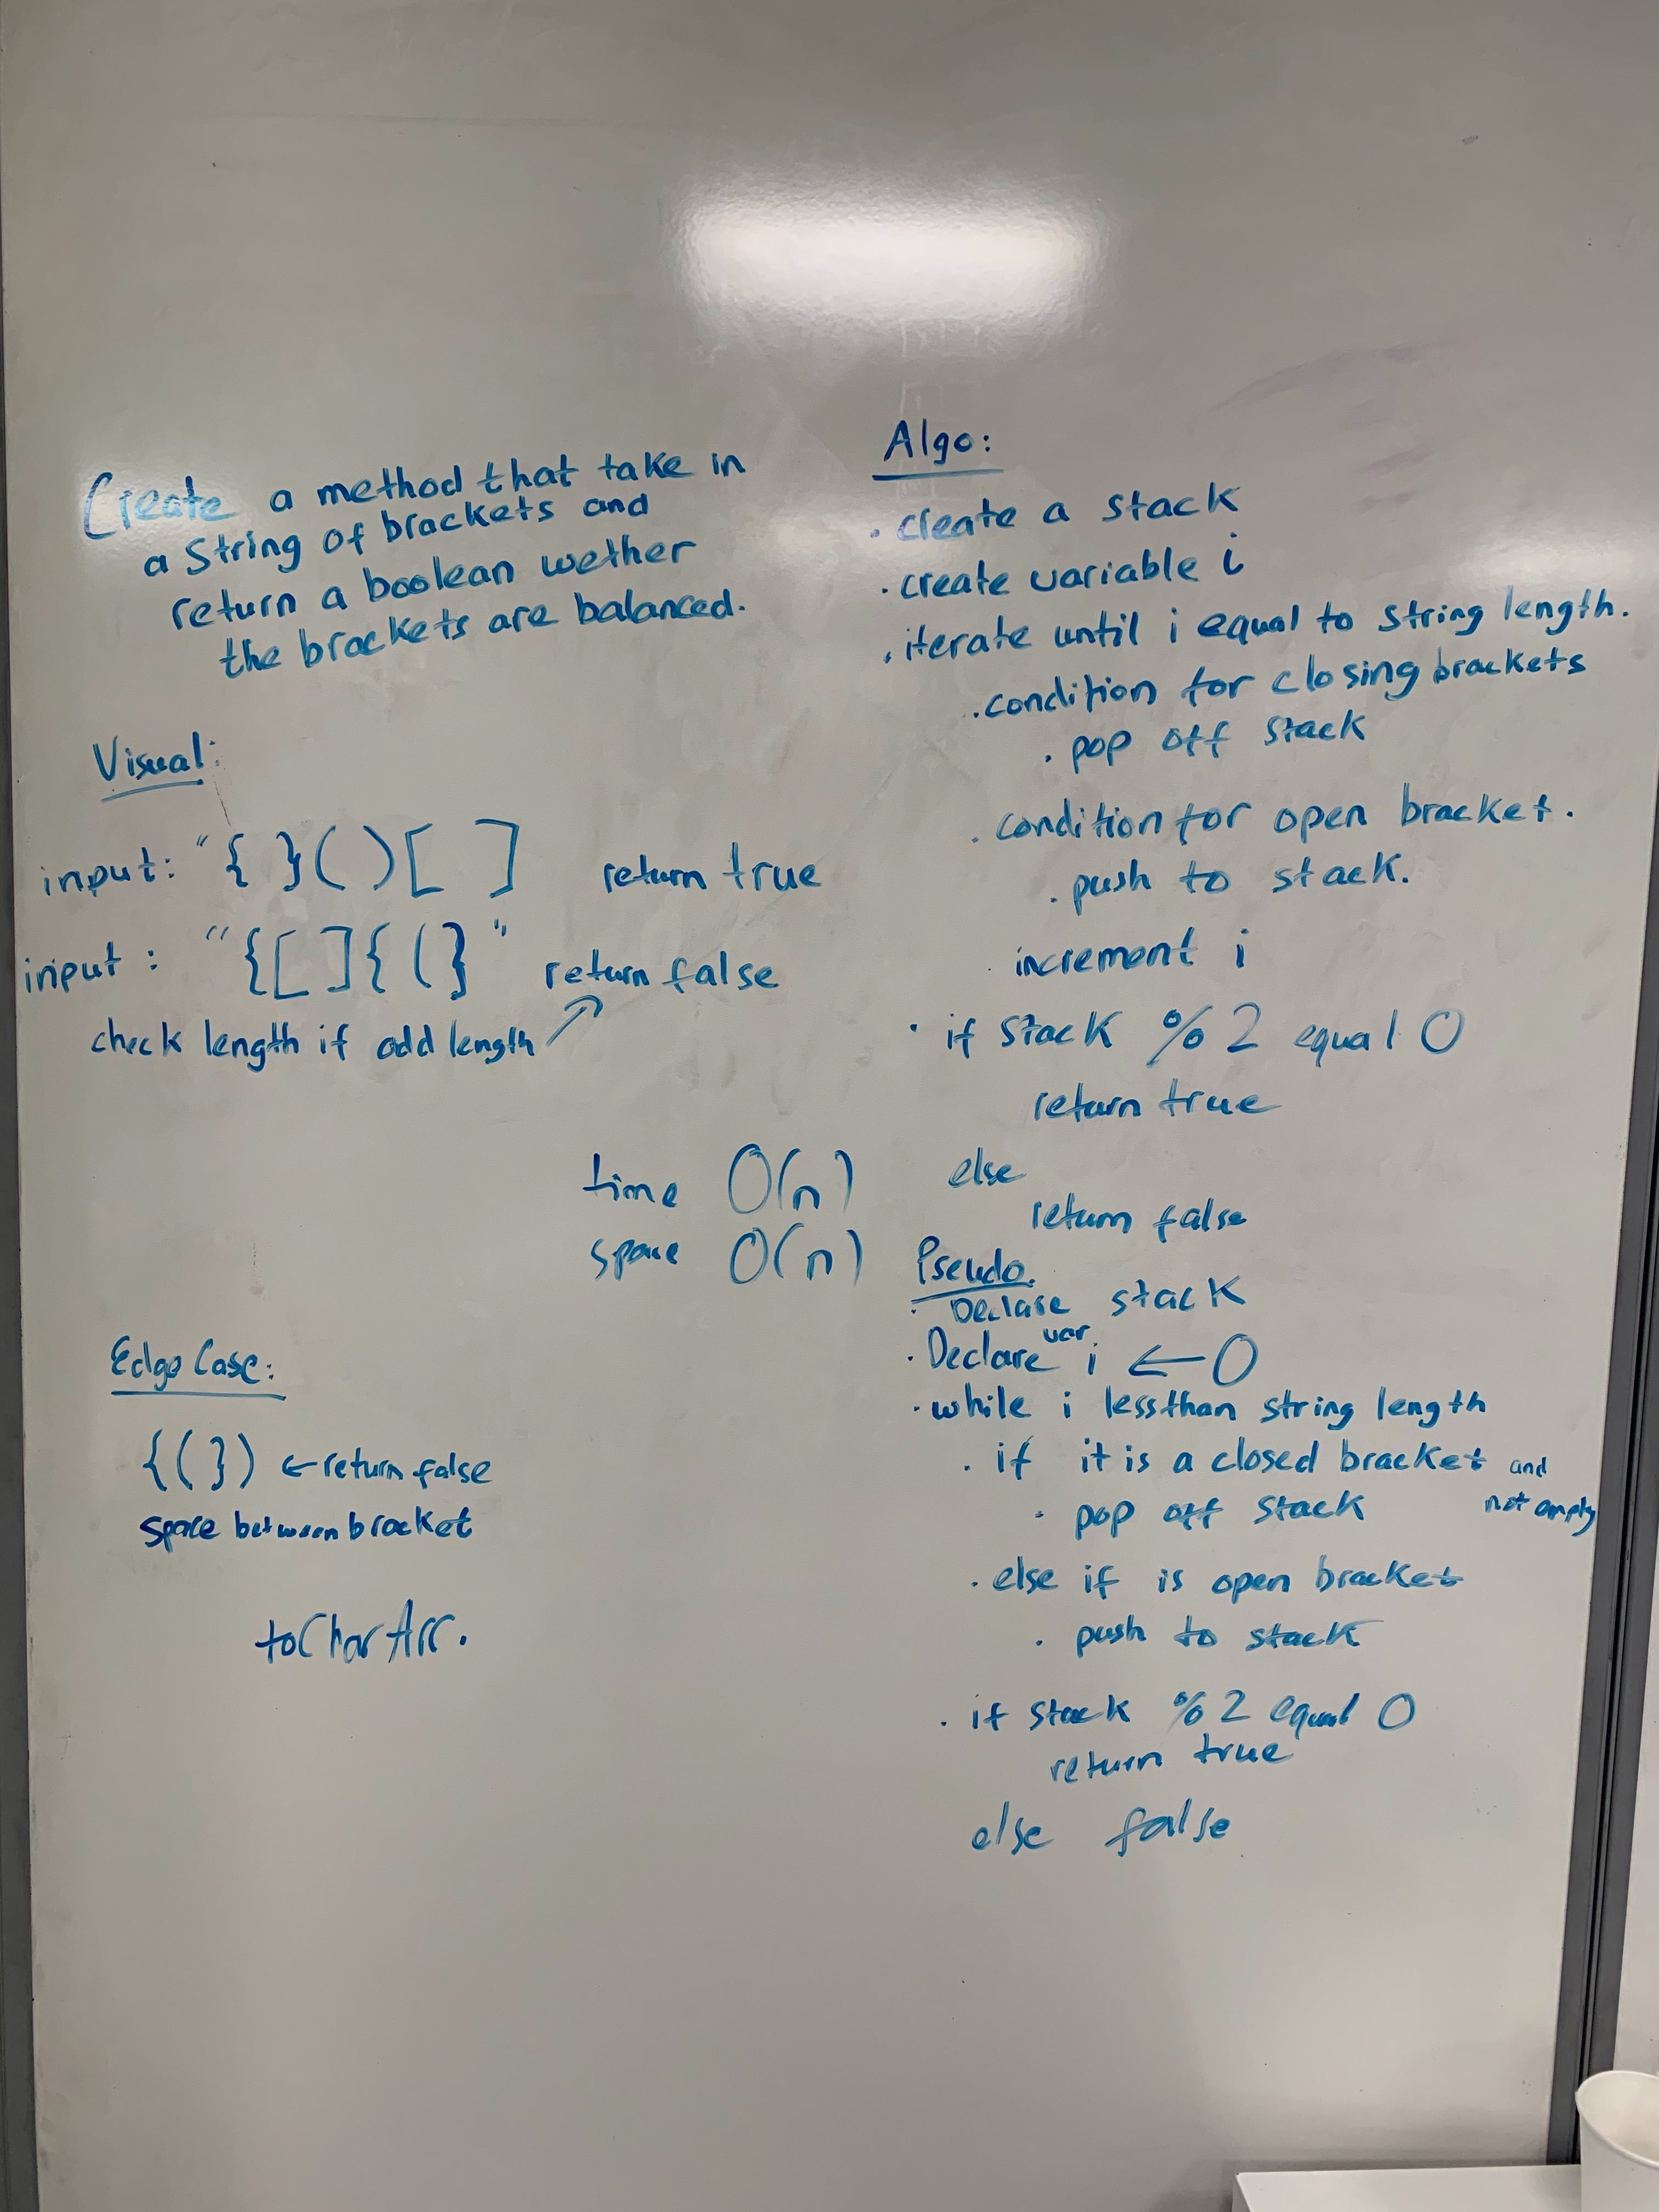 Create a method that take in
a String of brackets and
return a boolean wether
the brackets are balanced.
Visual:
input: "{ }( )[ ]    return true
input : "{[ ]{ (}"    return false
check length if odd length ↗
time O(n)
space O(n)
Edge Case:
{(}) ← return false
space between bracket
toCharArr.
Algo:
· create a stack
· create variable i
· iterate until i equal to string length.
· condition for closing brackets
· pop off stack
· condition for open bracket.
· push to stack.
· increment i
· if stack % 2 equal 0
return true
else
return false
Pseudo.
· Declare stack
· Declare var i ← 0
· while i less than string length
· if it is a closed bracket and not empty
· pop off stack
· else if is open bracket
· push to stack
· if stack % 2 equal 0
return true
else false